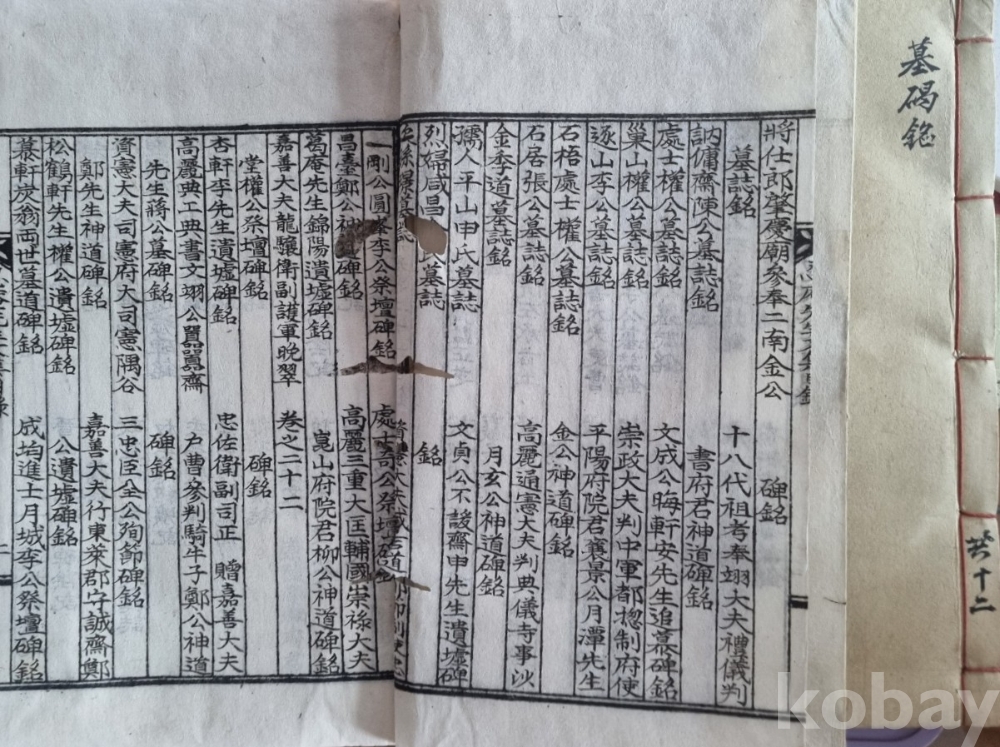 墓碣銘
共十二
將仕郎肇慶廟參奉二南金公 碑銘
墓誌銘 十八代祖考奉翊大夫禮儀判
訥傭齋陳公墓誌銘 書府君神道碑銘
處士權公墓誌銘 文成公晦軒安先生追慕碑銘
巢山權公墓誌銘 崇政大夫判中軍都摠制府使
逐山李公墓誌銘 平陽府院君襄景公月潭先生
石梧處士權公墓誌銘 金公神道碑銘
石居張公墓誌銘 高麗通憲大夫判典儀寺事沙
金季道墓誌銘 月玄公神道碑銘
孺人平山申氏墓誌 文貞公不諼齋申先生遺墟碑
烈婦咸昌 氏墓誌 銘
一剛公圓峯李公祭壇碑銘 處士奇公祭壇碑銘
昌臺鄭公神 碑銘 高麗三重大匡輔國崇祿大夫
葛庵先生錦陽遺墟碑銘 崑山府院君柳公神道碑銘
嘉善大夫龍驤衛副護軍晩翠 卷之二十二
堂權公祭壇碑銘 碑銘
杏軒李先生遺墟碑銘 忠佐衛副司正 贈嘉善大夫
高麗典工典書文翊公囂囂齋 戶曹參判騎牛子鄭公神道
先生蔣公墓碑銘 碑銘
資憲大夫司憲府大司憲隅谷 三忠臣全公殉節碑銘
鄭先生神道碑銘 嘉善大夫行東萊郡守誠齋鄭
松鶴軒先生權公遺墟碑銘 公遺墟碑銘
慕軒炭翁兩世墓道碑銘 成均進士月城李公祭壇碑銘
kobay